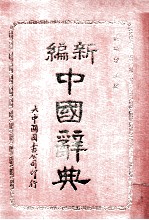 新編
中國辭典
大中國圖書公司印行